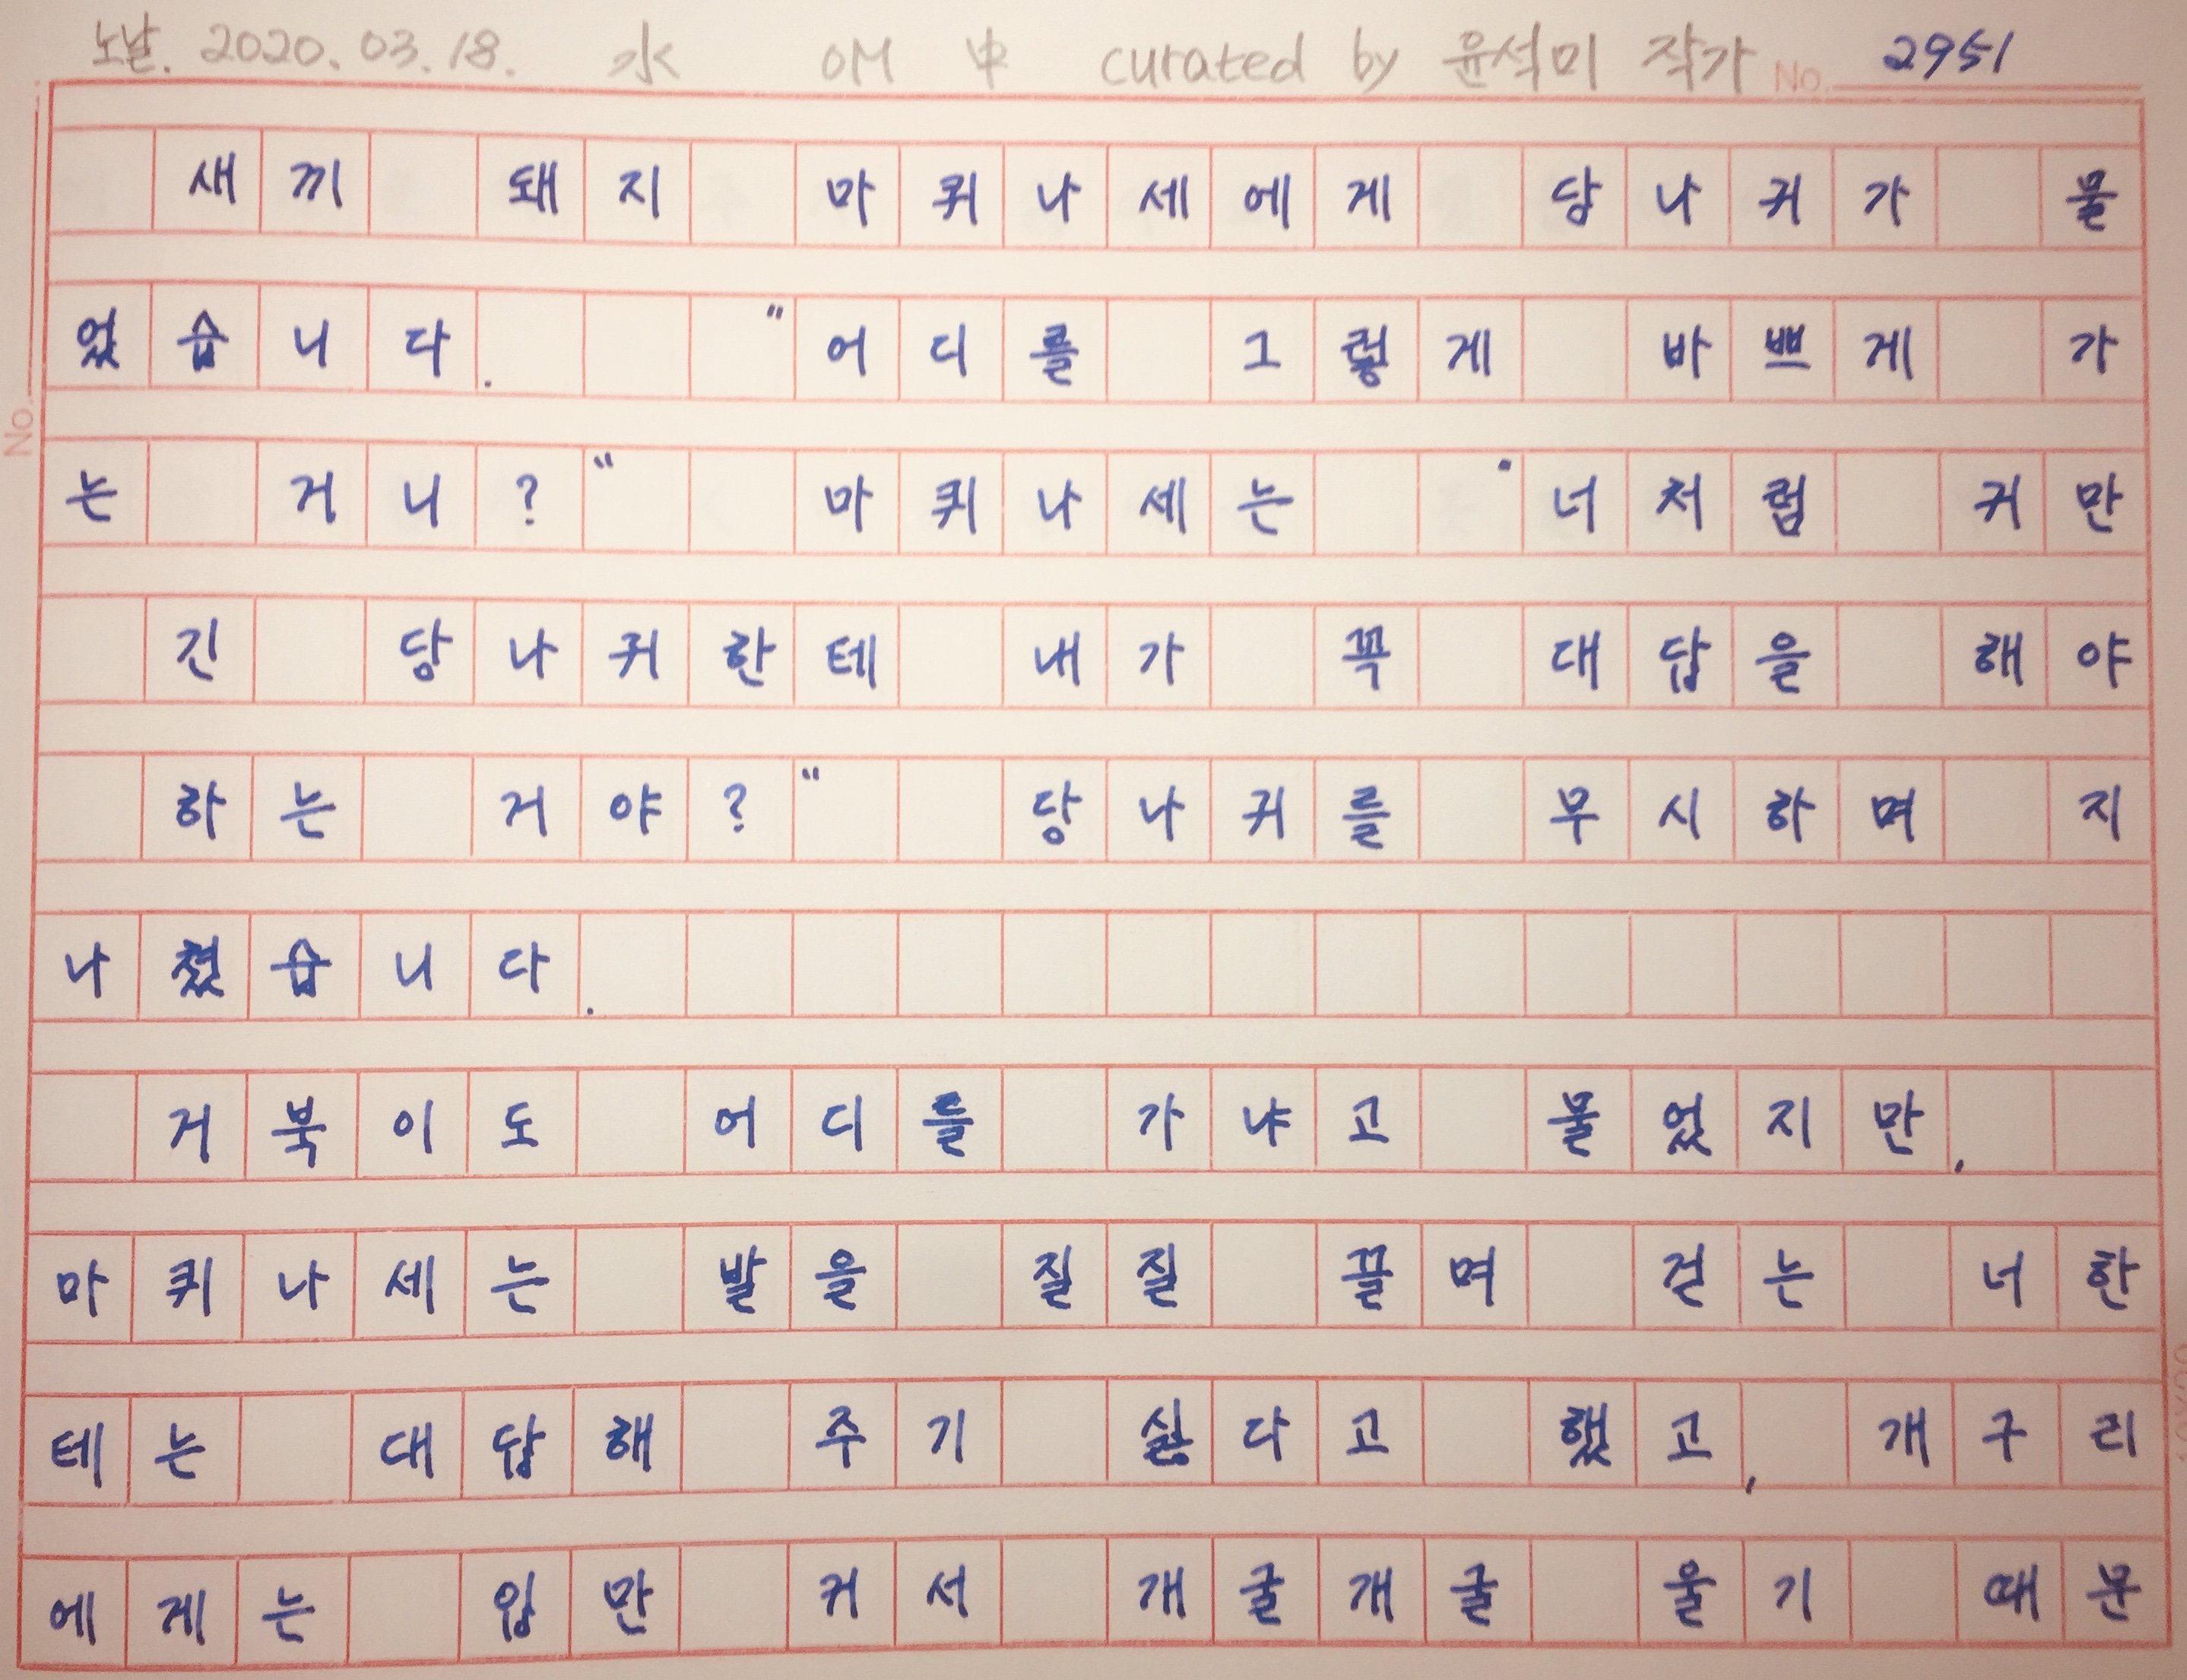 노날. 2020. 03. 18. 水 OM 中 curated by 윤석미 작가 No. 2951
새끼 돼지 마퀴나세에게 당나귀가 물
었습니다. "어디를 그렇게 바쁘게 가
는 거니?" 마퀴나세는 "너처럼 귀만
긴 당나귀한테 내가 꼭 대답을 해야
하는 거야?" 당나귀를 무시하며 지
나쳤습니다.
거북이도 어디를 가냐고 물었지만,
마퀴나세는 발을 질질 끌며 걷는 너한
테는 대답해 주기 싫다고 했고, 개구리
에게는 입만 커서 개굴개굴 울기 때문
No.